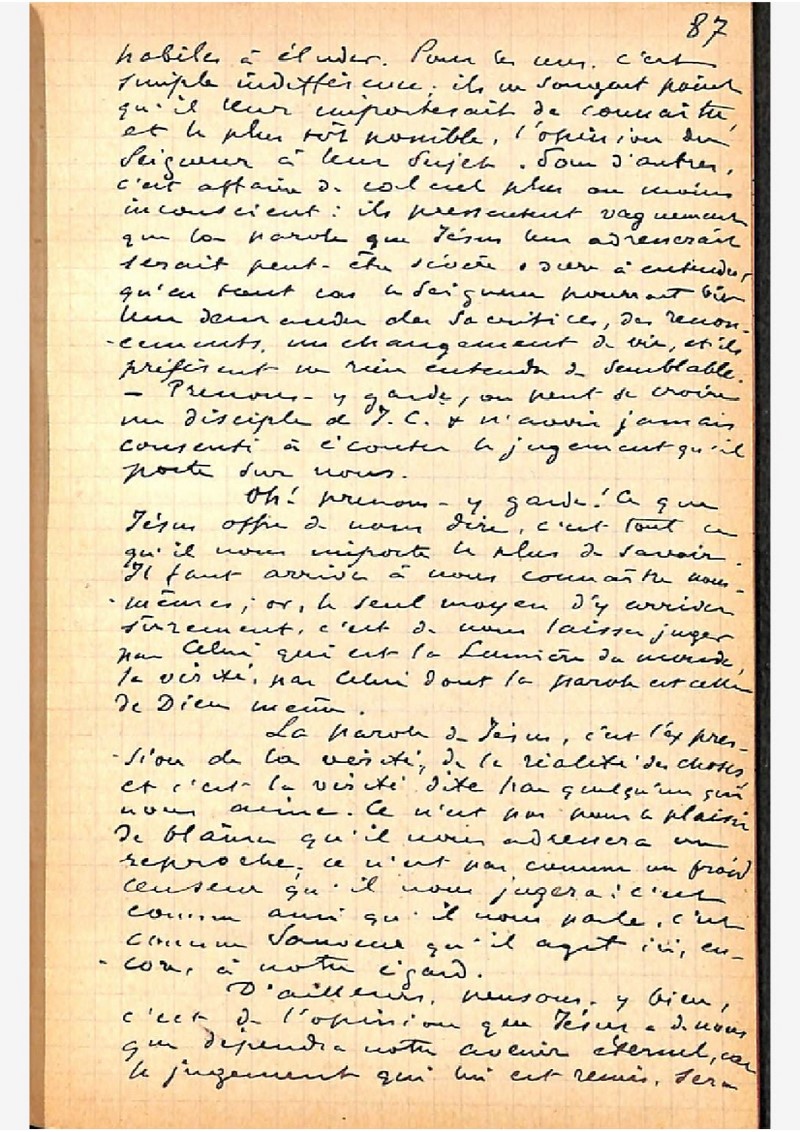 87
habiles à éluder. Pour les uns, c'est
simple indifférence : ils ne songent point
qu'il leur importerait de connaître,
et le plus tôt possible, l'opinion du
Seigneur à leur sujet. Pour d'autres,
c'est affaire de calcul plus ou moins
inconscient : ils pressentent vaguement
que la parole que Jésus leur adresserait
serait peut-être sévère, dure à entendre,
qu'en tout cas le Seigneur pourrait bien
leur demander des sacrifices, des renon-
-cements, un changement de vie, et ils
préfèrent ne rien entendre de semblable.
— Prenons-y garde, on peut se croire
un disciple de J.C. & n'avoir jamais
consenti à écouter le jugement qu'il
porte sur nous.
Oh! prenons-y garde! Ce que
Jésus offre de nous dire, c'est tout ce
qu'il nous importe le plus de savoir.
Il faut arriver à nous connaître nous-
-mêmes; or, le seul moyen d'y arriver
sûrement, c'est de nous laisser juger
par Celui qui est la Lumière du monde,
la vérité, par Celui dont la parole est celle
de Dieu même.
La parole de Jésus, c'est l'expres-
-sion de la vérité, de la réalité des choses
et c'est la vérité dite par quelqu'un qui
nous aime. Ce n'est pas pour le plaisir
de blâmer qu'il nous adressera un
reproche, ce n'est pas comme un froid
censeur qu'il nous jugera : c'est
comme ami qu'il nous parle, c'est
comme Sauveur qu'il agit ici, en-
-core, à notre égard.
D'ailleurs, pensons-y bien,
c'est de l'opinion que Jésus a de nous
que dépendra notre avenir éternel, car
le jugement qui lui est remis, sera